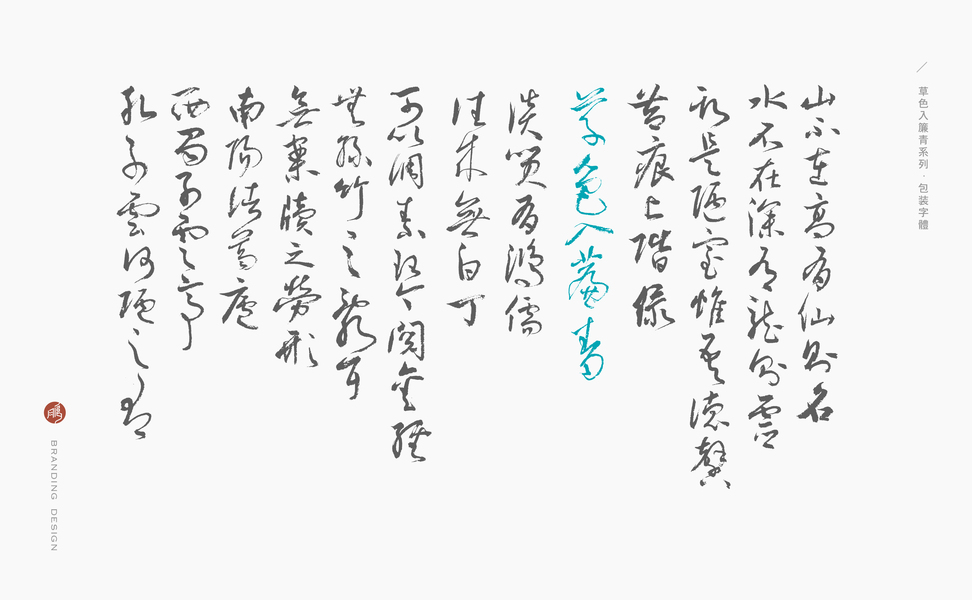 草色入簾青系列 · 包裝字體
山不在高有仙則名
水不在深有龍則靈
斯是陋室惟吾德馨
苔痕上階綠
草色入簾青
談笑有鴻儒
往來無白丁
可以調素琴閱金經
無絲竹之亂耳
無案牘之勞形
南陽諸葛廬
西蜀子雲亭
孔子雲何陋之有
BRANDING DESIGN